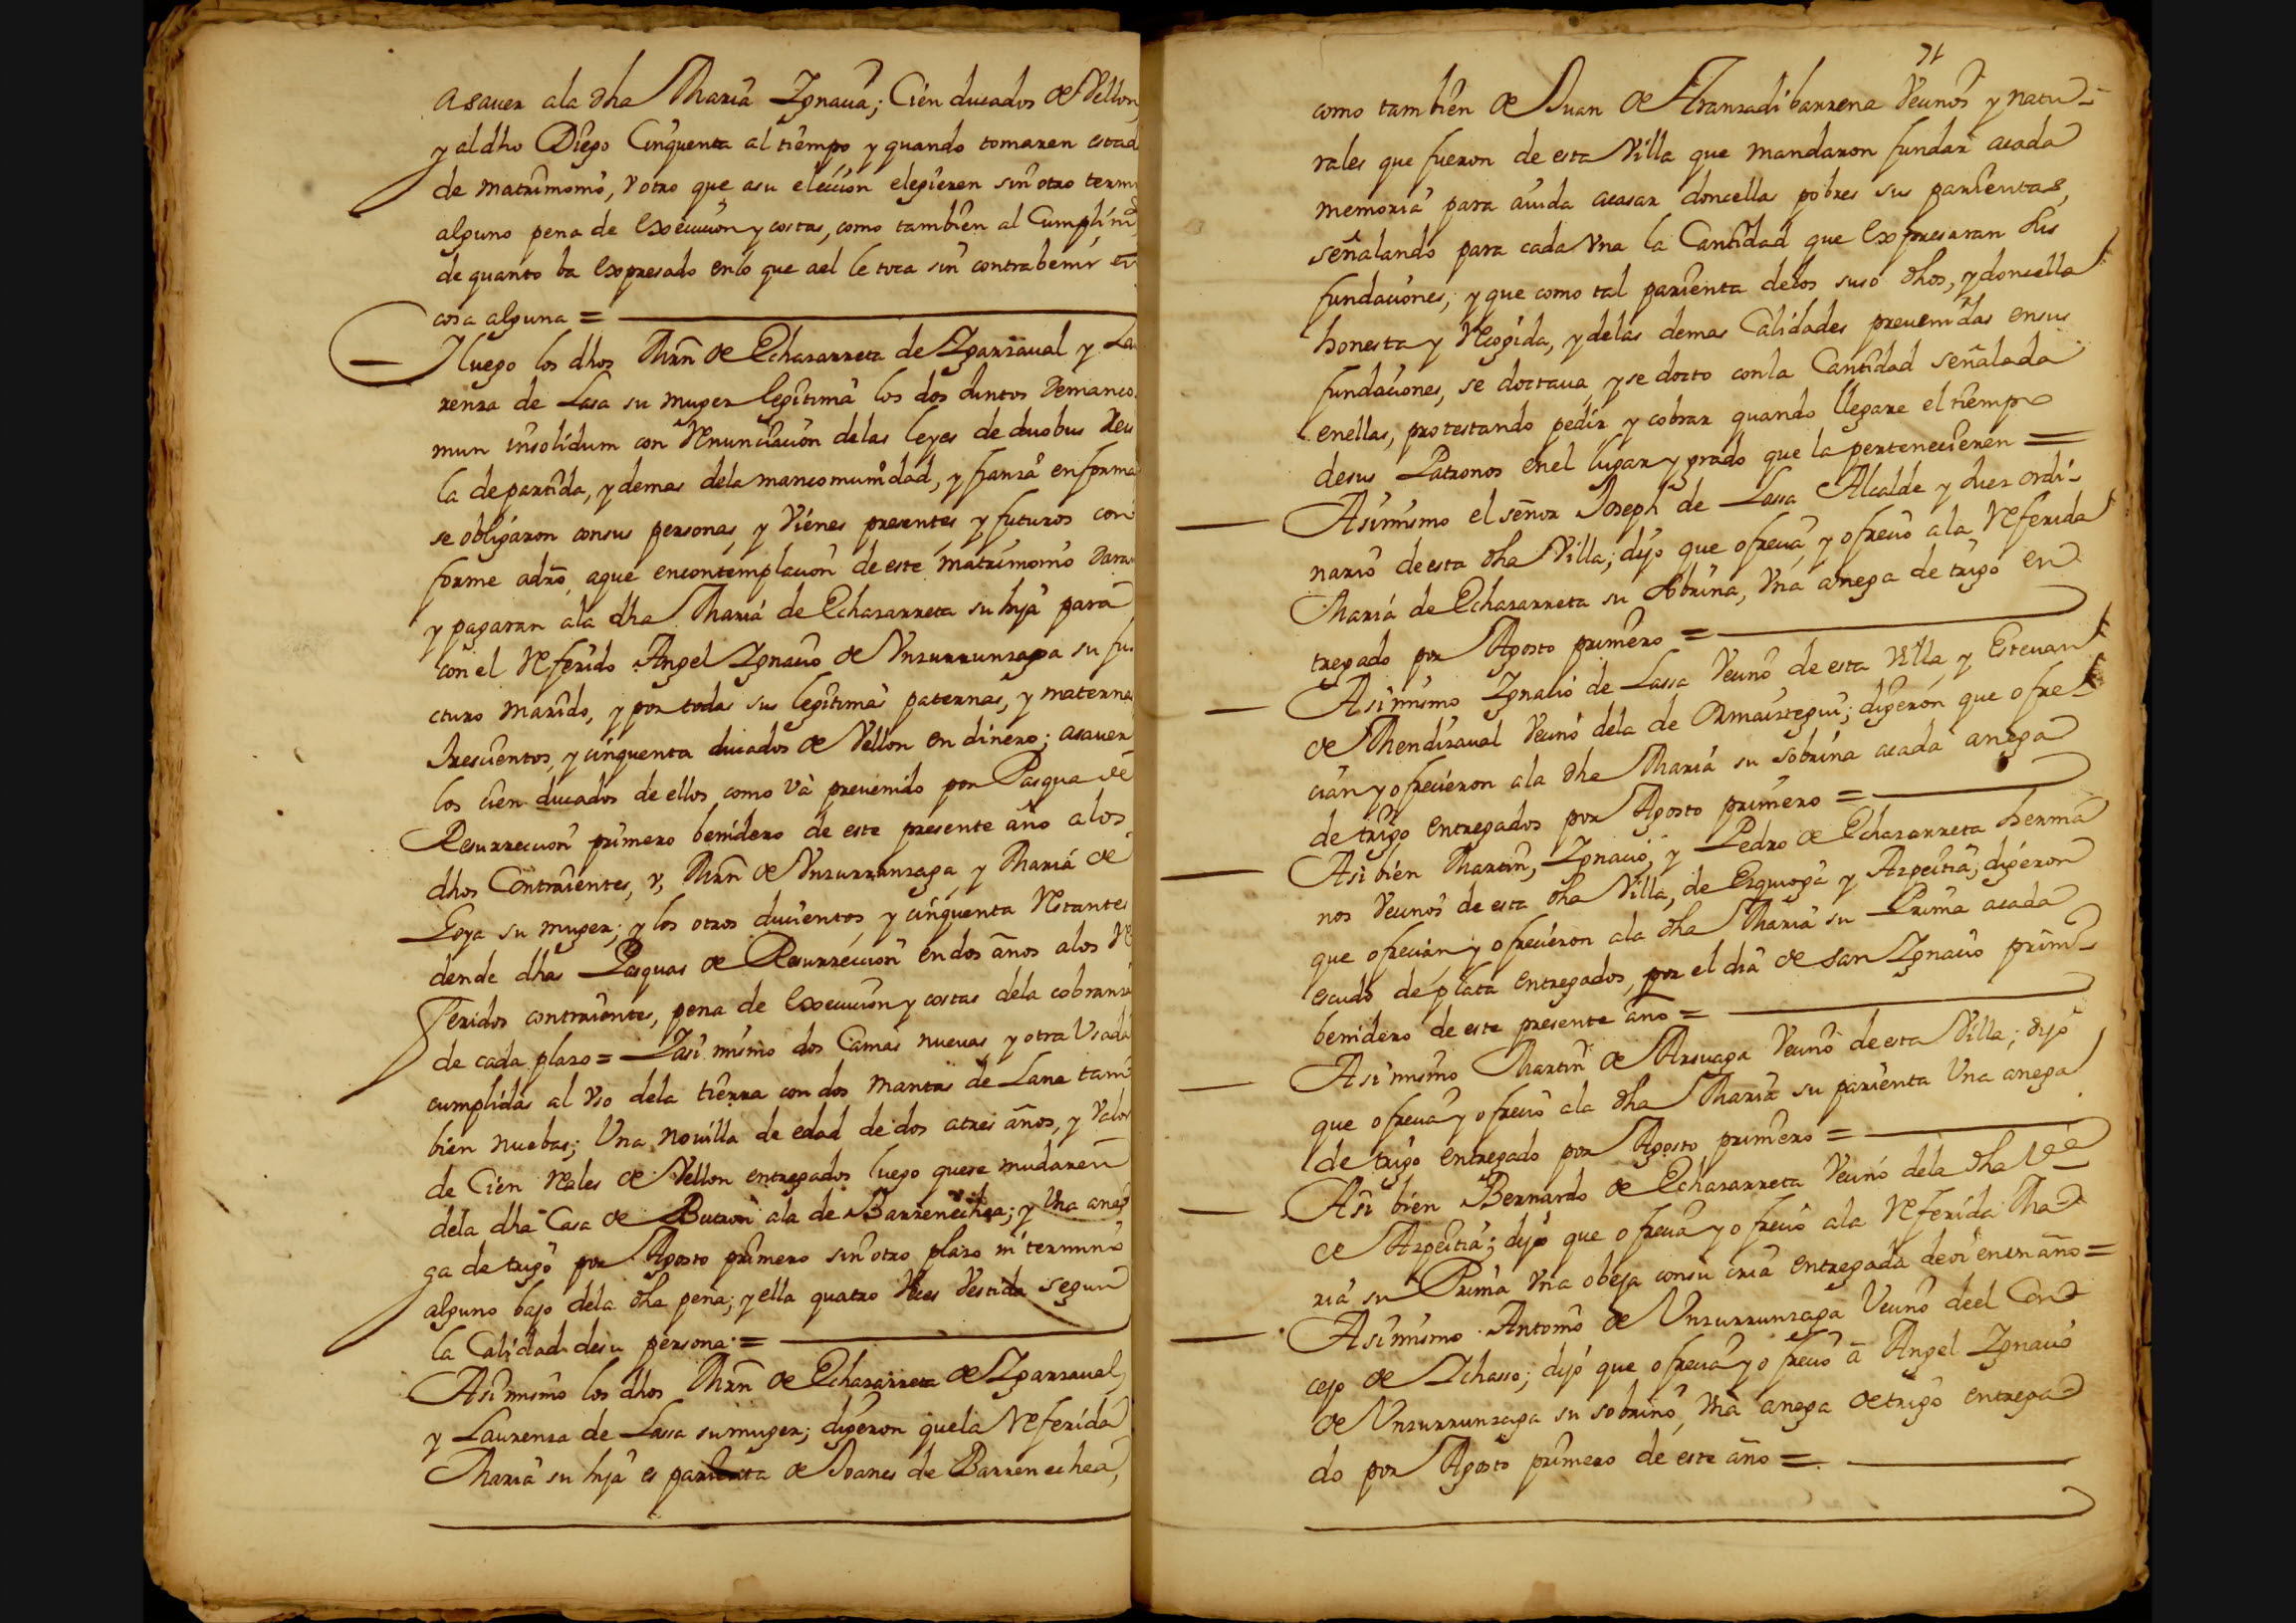 asauer ala dha Maria Ygnacia; Cien ducados de Vellon,
y al dho Diego Cinquenta al tiempo y quando tomaren estad
de matrimonio, v otro que asu eleccion elegieren sin otro term
alguno pena de Execucion y costas, como tambien al Cumplim
de quanto ba Expresado enlo que ael le toca sin contrabenir en
cosa alguna =
Y luego los dhos Mrn de Echazarreta de Ygarzaual y La
renza de Lasa su muger legitima los dos Juntos Demanco
mun insolidum con Renunciacion delas leyes de duobus Reis
la departida, y demas dela mancomunidad, y fianza en forma
se obligaron consus personas, y Vienes presentes, y futuros con
forme adro, aque encontemplacion de este matrimonio Daran
y pagaran ala dha Maria de Echazarreta su hija para
con el Referido Angel Ygnacio de Vnzurrunzaga su fu
cturo marido, y por todas sus legitimas paternas, y maternas
trescientos, y cinquenta ducados de Vellon en dinero; asauer
los cien ducados de ellos como và preuenido por Pasqua de
Resurreccion primero benidero de este presente año alos
dhos Contraientes, v, Mrn de Vnzurrunzaga, y Maria de
Loya su muger; y los otros ducientos, y cinquenta Restantes
dende dhas Pasquas de Resurreccion en dos años alos Re
feridos contraientes, pena de Execucion y costas dela cobranza
de cada plazo = Y asi mismo dos Camas nueuas, y otra Vsada
cumplidas al vso dela tierra con dos mantas de Lana tam
bien nuebas; Vna nouilla de edad de dos atres años, y Valor
de Cien Reales de Vellon entregados luego quese mudaren
dela dha Casa de Butron ala de Barrenechea; y Vna ane
ga de trigo por Agosto primero sin otro plazo ni termino
alguno bajo dela dha pena; y ella quatro Veces Vestida segun
la Calidad desu persona =
Asimismo los dhos Mrn de Echazarreta de Ygarzaual,
y Laurenza de Lassa su muger; digeron quela Referida
Maria su hija es parienta de Joanes de Barrenechea,
71
como tambien de Juan de Aranzadibarrena Vecinos y natu-
rales que fueron de esta Villa que mandaron fundar acada
memoria para aiuda acasar doncellas pobres sus parientas,
señalando para cada Vna la Cantidad que Expresaran dhs
fundaciones; y que como tal parienta delos suso dhos, y doncella
honesta y Recogida, y delas demas Calidades preuenidas ensus
fundaciones, se doctaua, y se docto conla Cantidad señalada
enellas, protestando pedir y cobrar quando llegare el tiempo
desus Patronos enel lugar y grado que la pertenecieren =
Asimismo el señor Joseph de Lassa Alcalde y Juez ordi-
nario deesta dha Villa; dijo que ofrecia, y ofrecio ala Referida
Maria de Echazarreta su sobrina, Vna anega de trigo en
tregado por Agosto primero =
Asimismo Ygnacio de Lassa Vecino de esta Villa, y Esteuan
de Mendizaual Vecino dela de Ormaiztegui; digeron que ofre
cian y ofrecieron ala dha Maria su sobrina acada anega
de trigo entregados por Agosto primero =
Asi bien Martin, Ygnacio, y Pedro de Echazarreta herma
nos Vecinos de esta dha Villa, de Ezquioga y Azpeitia; digeron
que ofrecian y ofrecieron ala dha Maria su Prima acada
escudo de plata entregados, por el dia de san Ygnacio prim-
benidero de este presente año =
Asi mismo Martin de Arsuaga Vecino de esta Villa; dijo
que ofrecia y ofrecio ala dha Maria su parienta Vna anega
de trigo entregado por Agosto primero =
Asi bien Bernardo de Echazarreta Vecino dela dha Va
de Azpeitia; dijo que ofrecia y ofrecio ala Referida Ma
ria su Prima Vna obeja consu cria entregada de oi en vn año =
Asimismo Antonio de Vnzurrunzaga Vecino deel Con
cejo de Ychasso; dijo que ofrecia y ofrecio à Angel Ygnacio
de Vnzurrunzaga su sobrino, Vna anega de trigo entrega
do por Agosto primero de este año =